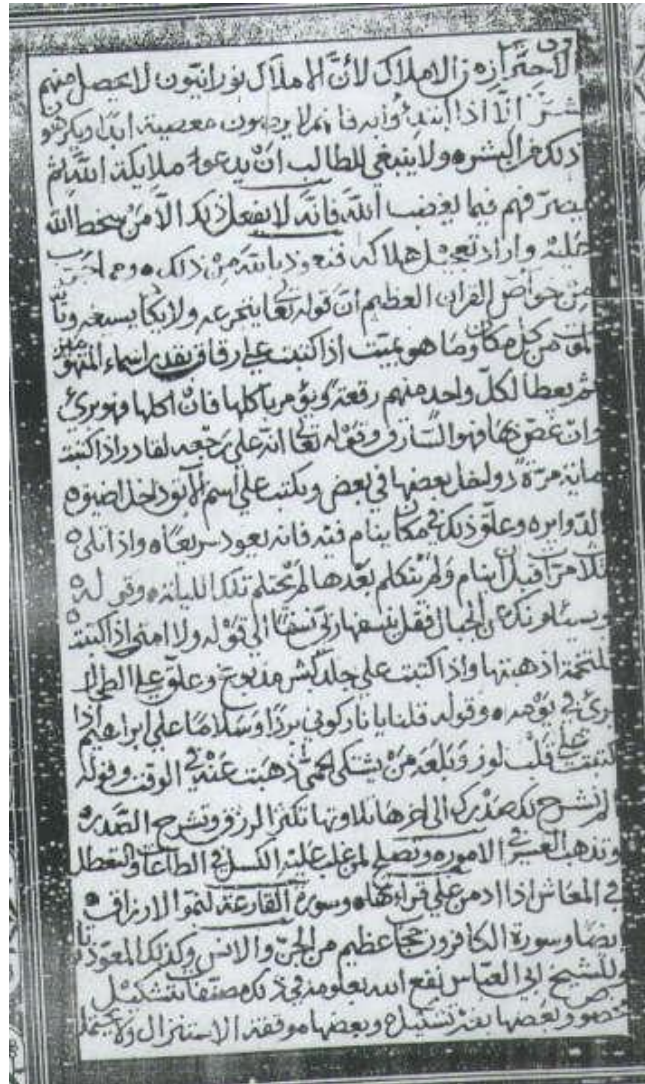 لاحترازه من الاملاك لأنّ الاملاك نورانيّون لا يحصل منهم
الّا اذا ابتدؤا به فانهم لا يريدون معصية ابدا ويكرهون
ذلك من البشره ولا ينبغي للطالب انْ يدعوا ملايكة الله ثم
يصرّفهم فيما يغضب الله فانّه لا يفعل ذلك الّا منْ سخط الله
عليه واراد تعجيل هلاكه فنعوذ بالله مِنْ ذلك ه ومما
مِن خواصّ القران العظيم انّ قوله تعا يتجرعه ولا يكا يسيغه ويأ
الموت من كل مكان وما هو بميّت اذا كتبت علي ارقاق بقدر اسماء المتهو
ثم يعطا لكلّ واحد منهم رقعة ويؤمر باكلها فانْ اكلها فهو برئ
وانْ غصّ بها فهو السّارق وقوله تعالي انّه علي رجعه لقادر اذا كتبت
ماية مرّة دواخل بعضها في بعض ويكتب علي اسم داخل اضيق ه
الدواير ه وعلّق ذلك في مكان ينام فيه فانه يعود سريعًا ه واذا تلي ه
ثلاث مرات قبل ان ينام ولم يتكلم بعدها لم يحتلم تلك الليلة ه وقوله
ويسئلونك عن الجبال فقل ينسفها ربّي نسفًا الي قوله ولا امتى اذا كتبت
اذهبتها واذا كتبت علي جلد كبش مذبوح وعلّق علي الطحال
برئ في يومه ه وقوله قلنا يا نار كوني بردًا وسلامًا علي ابراهيم اذا
كتبت علي قلب لوز وبلعه مَنْ يشتكي الحمّي ذهبت عنه في الوقت وقوله
الم نشرح لك صدرك الي اخرها تلاوتها تكثر الرزق وتشرح الصّدر ه
وتذهب العسر في الامور ه وتصلح لمن غلب عليه الكسل في الطاعات والتعطل
في المعاش اذا ادمن علي قراءتها ه وسورة القارعة لنمو الارزاق ه
ايضا وسورة الكافرون حجاب عظيم من الجنّ والانس وكذلك المعوّذتا
وللشيخ ابي العبّاس نفع الله بعلومه في ذلك مصنّفات
وبعضها وبعضها موقفة الاستنزال